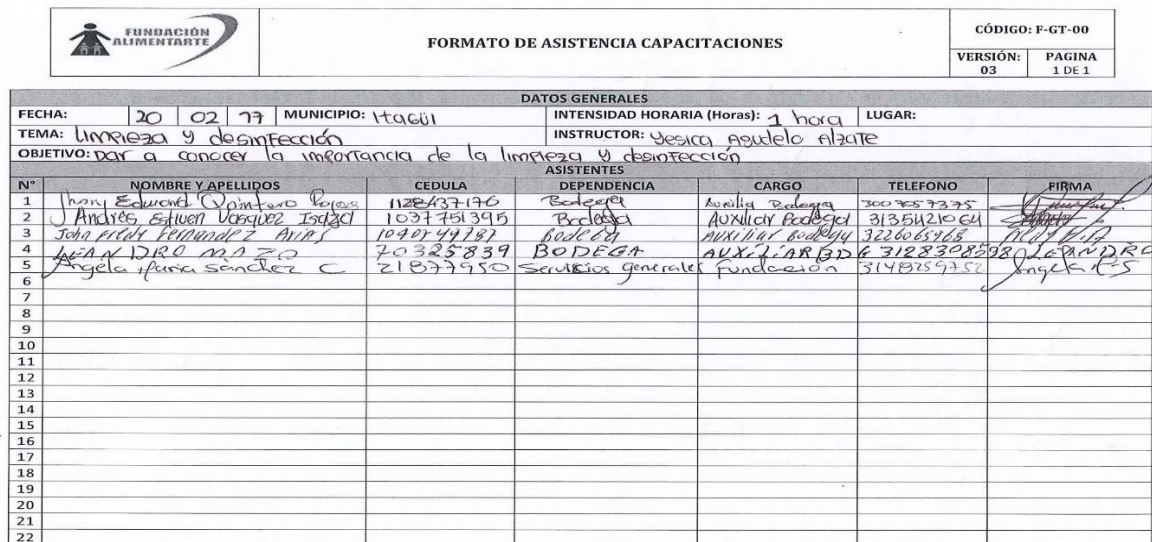 FUNDACIÓN
ALIMENTARTE
FORMATO DE ASISTENCIA CAPACITACIONES
CÓDIGO: F-GT-00
VERSIÓN: 03 PAGINA 1 DE 1
DATOS GENERALES
FECHA: 20 02 MUNICIPIO: Itagüi INTENSIDAD HORARIA (Horas): 1 hora LUGAR:
TEMA: Limpieza y desinfección INSTRUCTOR: Yesica Agudelo Alzate
OBJETIVO: Dar a conocer la importancia de la limpieza y desinfección
ASISTENTES
N° NOMBRE Y APELLIDOS CEDULA DEPENDENCIA CARGO TELEFONO FIRMA
1 Jhony Edward Quintero Rojas 1128437176 Bodega Auxilia Bodega 3007057375
2 Andrés Estiven Vasquez Isaza 1037751395 Bodega Auxiliar Bodega 3135421064
3 John Fredy Fernandez Arias Bodega Auxiliar Bodega
4 LEANDRO MAZO 70325839 BODEGA AUXILIAR BDG 3128308598 LEANDRO
5 Angela Maria Sánchez C 21877950 Servicios generales Fundación Angela
6
7
8
9
10
11
12
13
14
15
16
17
18
19
20
21
22